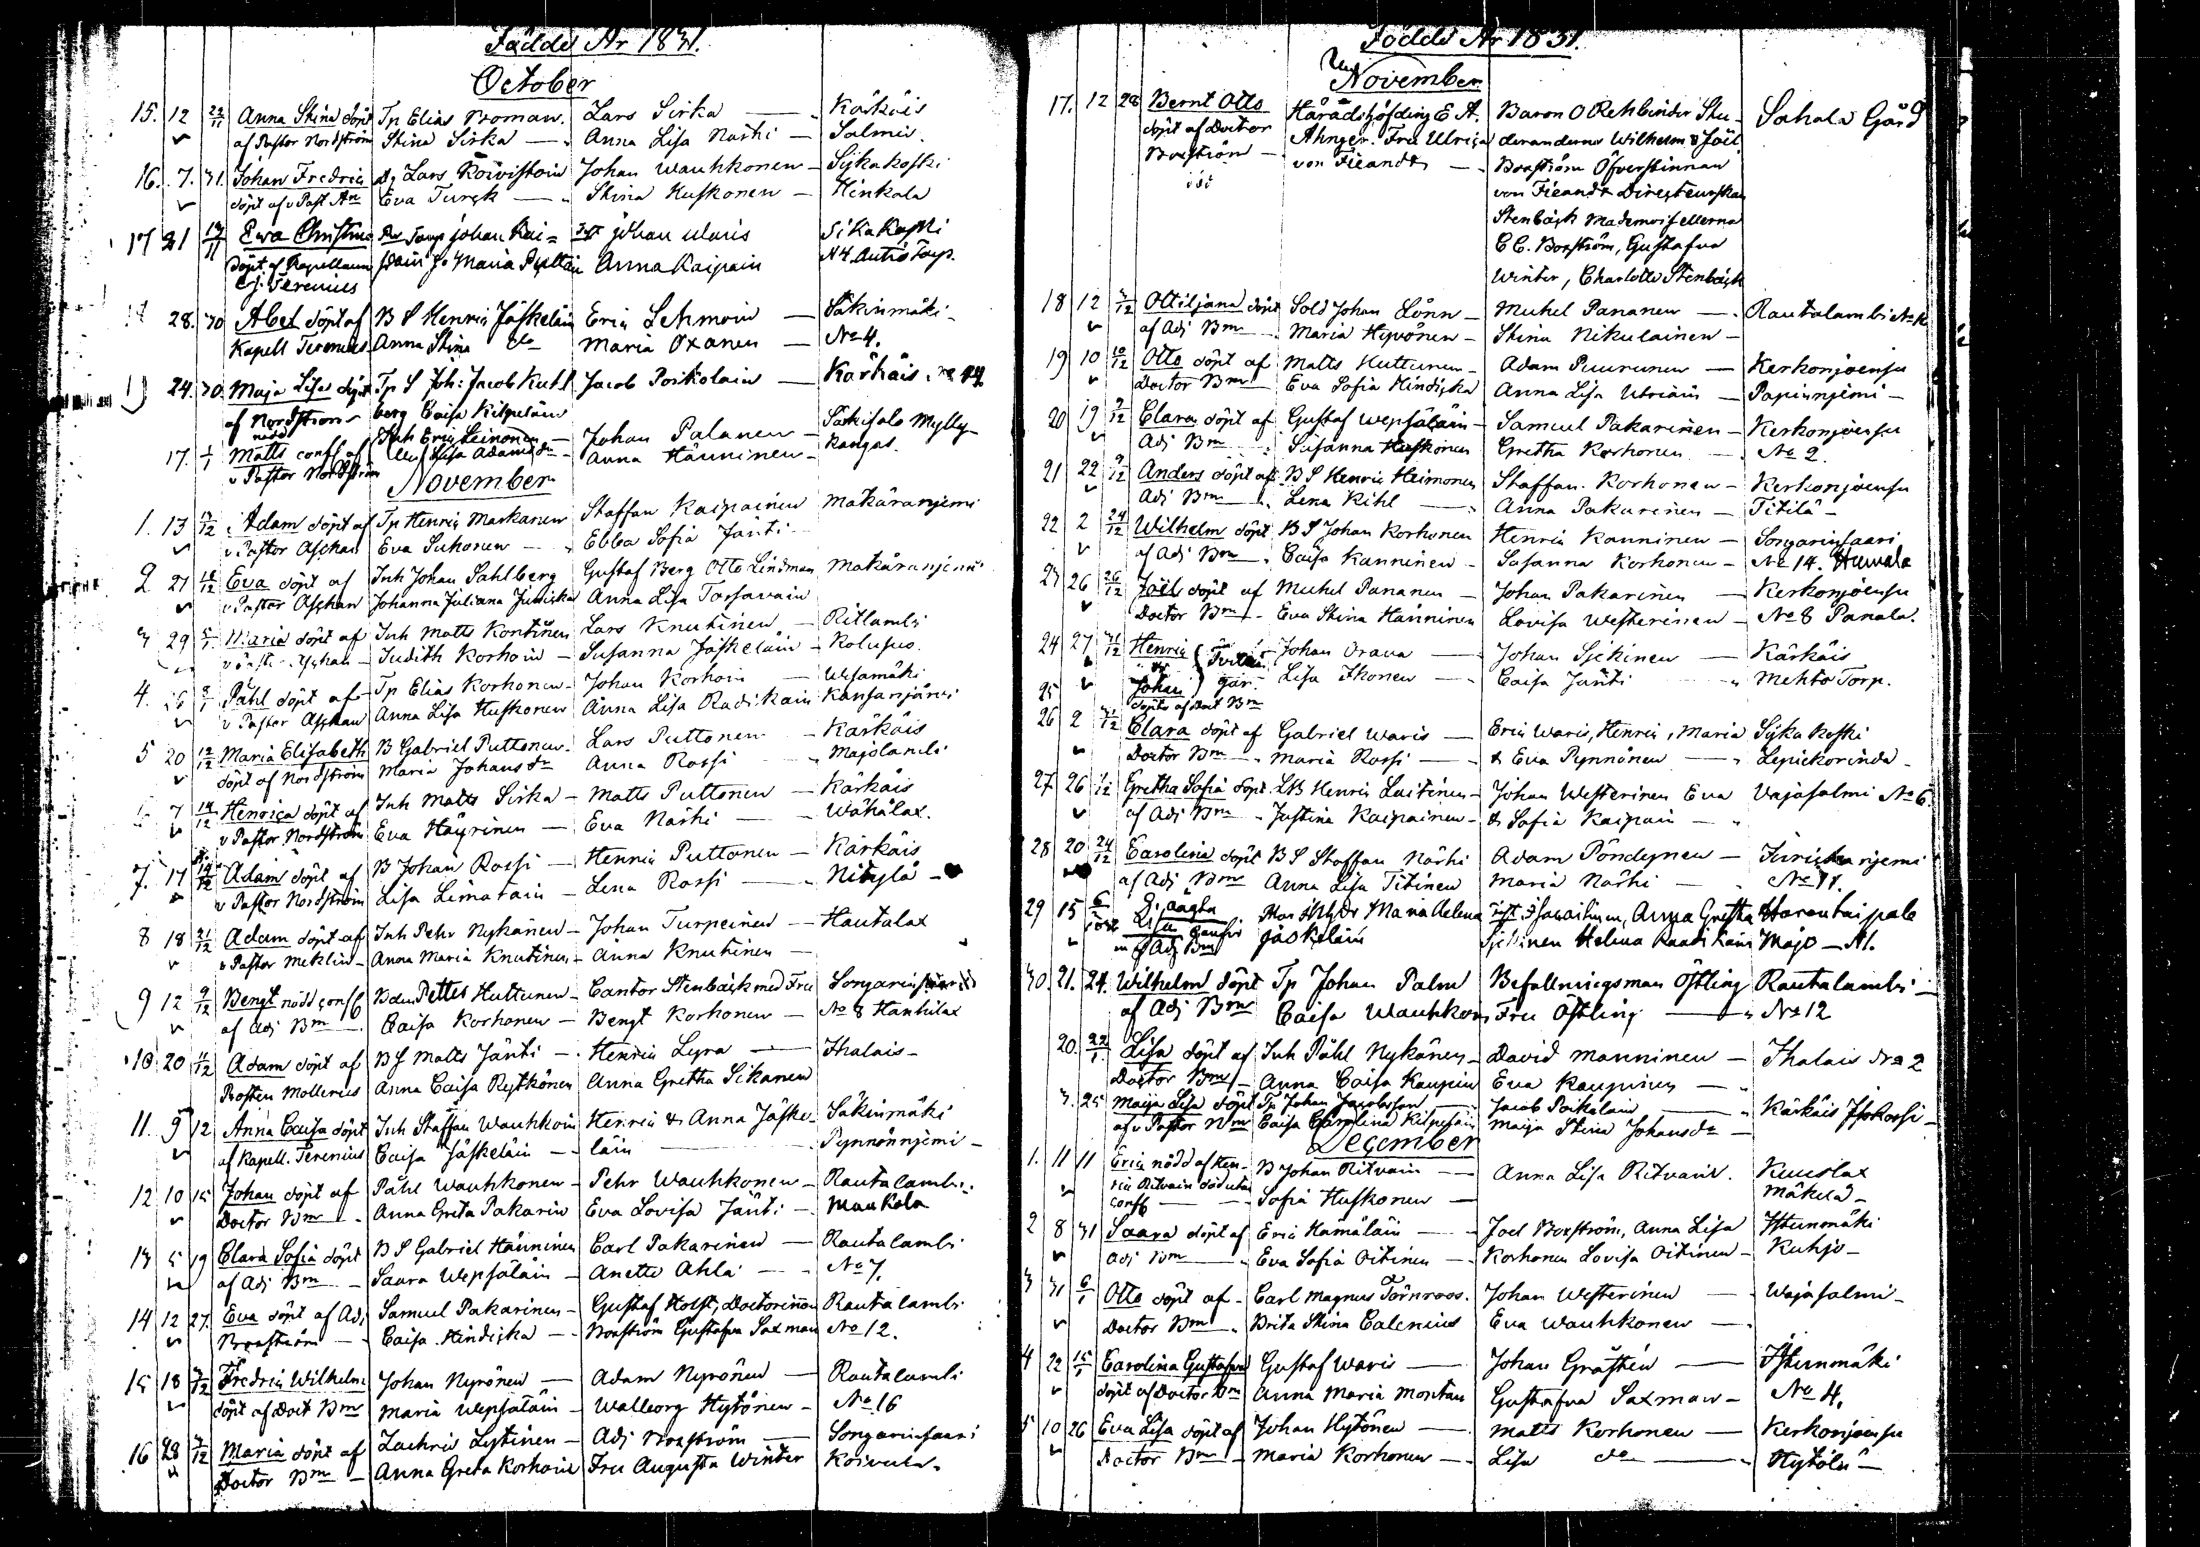 Födde År 1831.
October
15. 12 22/11 Anna Stina döpt Tp Elias Broman. Lars Sirka — Kärkäis
af Pastor Nordström Stina Sirka — Anna Lisa Närhi — Salmis.
16. 7. 31. Johan Fredric Dg Lars Koivistoin Johan Wauhkonen — Sijkakoski
döpt af v Past Am Eva Turck — Stina Huskonen — Hinkala
17 21 Ewa Christina Torp johan Kai= johan waris Sikakoski
Döpt af Kapellanen Maria Anna Kaipain N4 Autio Torp.
Cj. Terenius
28. 30 Abel döpt af B S Henric Jäskeläin Eric Lehmoin — Säkinmäki
Kapell Terenius Anna Stina do Maria Oxanen — No 4.
24. 30. Maja Lisa döpt Tp S Joh: Jacob Kuhl Jacob Poikolain — Kärkäis. No 14
af Nordström berg Caisa Kilpeläin
nödd Inh Eric Leinonen — Johan Palanen — Säkisalo Mylly
17. 1/1 Matts conff af Lisa Adamsdr — Anna Hänninen — kangas.
v Pastor Nordström
November
1. 13 Adam döpt af Tp Henric Markanen Staffan Kaipainen Makäranjemi
v Pastor Aschan Eva Suhonen — Ebba Sofia Jänti
2 21 Eva döpt af Inh Johan Sahlberg Gustaf Berg Otto Lindman Makäranjemi
v Pastor Aschan Johanna Juliana Anna Lisa Torsavain
3 29 Maria döpt af Inh Matts Kontinen Lars Knutinen — Ritlambi
Aschan — Judith Korhoin — Susanna Jäskeläin — Kolusus.
4. 8/1 Påhl döpt af Tp Elias Korhonen — Johan Korhoin — Wesamäki
v Pastor Aschan Anna Lisa Huskonen Anna Lisa Radikain Kansanjärvi
5 20 12/12 Maria Elisabeth B Gabriel Puttonen. Lars Puttonen — Kärkäis
döpt af Nordström Maria Johansdr Anna Rossi Majolambi
7 14/12 Henrica döpt af Inh Matts Sirka — Matts Puttonen — Kärkäis
v Pastor Nordström Eva Häyrinen — Eva Närhi — Wähälax.
7. 17 Adam döpt af B Johan Rossi — Henric Puttonen — Kärkäis
v Pastor Nordström Lisa Limatain — Lena Rossi — Nitylä —
8 18 21/12 Adam döpt af Inh Pehr Nykänen — Johan Turpeinen — Hautalax
v Pastor Meklin — Anna Maria Knutinen — Anna Knutinen —
9 12 9/12 Bengt nödd conf Bdn Petter Huttunen — Cantor Stenbäck med Fru
af Adj Bm Caisa Korhonen — Bengt Korhonen — No 8 Hankilax
10 20 11/12 Adam döpt af B S Matts Jänti — Henric Lyra — Ihalais —
Prosten Mollerius Anna Caisa Rytkönen Anna Gretha Sikanen
11. 9 12 Anna Caisa döpt Inh Staffan Wauhkoin Henric & Anna Jäske Säkinmäki
af Kapell. Terenius Caisa Jäskeläin — läin — Pynnönnjemi —
12 10 15 Johan döpt af Påhl Wauhkonen — Pehr Wauhkonen — Rautalambi.
Doctor Bm Anna Greta Pakarin Eva Lovisa Jänti — Maukola
13 5 19 Clara Sofia döpt B S Gabriel Hänninen Carl Pakarinen — Rautalambi
af Adj Bm — Saara Wepsäläin — Anette Ahla — No 7.
14 12 27. Eva döpt af Adj Samuel Pakarinen — Gustaf Holst, Doctorinnan Rautalambi
Boxström — Caisa Hindicka — Boxström Gustafva Saxman No 12.
15 18 Fredric Wilhelm Johan Nyrönen — Adam Nyrönen — Rautalambi
döpt af Doct Bm Maria Wepsäläin — Walborg Hytönen — No 16
16 28 Maria döpt af Zachris Lytinen — Adj Boxström — Songarinsaari
Doctor Bm — Anna Greta Korhoin Fru Augusta Winter Koivula.
Födde År 1831.
November
17. 12 28 Bernt Otto Häradshöfding E A. Baron O Rehbinder Stu- Sahala Gård
döpt af Doctor Ahnger. Fru Ulrica deranderne Wilhelm & Joël
Boxström — von Fieandt — Boxström Öfverstinnan
von Fieandt Directeurskan
Stenbäck Mademoisellerna
C C. Boxström, Gustafva
Winter, Charlotte Stenbäck
18 12 Ottiljana döpt Sold Johan Lönn — Michel Pananen — Rautalambi No 12
af Adj Bm — Maria Hyvönen — Stina Nikulainen —
19 10 10/12 Otto döpt af Matts Huttunen — Adam Puurunen — Kerkonjoensu
Doctor Bm — Eva Sofia Hindicka Anna Lisa Utriain — Papinnjemi —
20 19 9/12 Clara döpt af Gustaf Wepsäläin — Samuel Pakarinen — Kerkonjoensu
Adj Bm Susanna Huskonen Gretha Korhonen — No 2.
21 22 9/12 Anders döpt af B S Henric Heimonen Staffan Korhonen — Kerkonjoensu
Adj Bm Lena Kihl — Anna Pakarinen — Titilä —
22 2 24/12 Wilhelm döpt B S Johan Korhonen Henric Kanninen — Songarinsaari
af Adj Bm. Caisa Kanninen — Susanna Korhonen — No 14.
23 26 26/12 Joël döpt af Michel Pananen — Johan Pakarinen — Kerkonjoensu
Doctor Bm — Eva Stina Hänninen Lovisa Westerinen — No 8 Panala.
24 27 31/12 Henric Johan Orava — Johan Sjekinen — Kärkäis
25 Johan Lisa Ikonen — Caisa Jänti Mehto Torp.
döpte af Doct Bm
26 2 Clara döpt af Gabriel Waris — Eric Waris, Henric, Maria Sijkakoski
Doctor Bm — Maria Rossi — & Eva Pynnönen — Lepickorinda —
27 26 Gretha Sofia döpt LB Henric Laitinen — Johan Westerinen Eva Vajasalmi No 6.
af Adj Bm — Justina Kaipainen — & Sofia Kaipain —
28 20 24/12 Carolina döpt B S Staffan Närhi Adam Pöndynen —
af Adj Bm Anna Lisa Titinen Maria Närhi — No 11.
29 15 Maria Helena Anna Gretha
af Adj Bm Jäskeläin Helena Majo — A1.
30 21. 24. Wilhelm döpt Tp Johan Palm Befallningsman Östling Rautalambi —
af Adj Bm Caisa Wauhkon Fru Östling — No 12
20. 22/1. Lisa döpt af Inh Påhl Nykänen — David Manninen — Ihalais No 2
Doctor Bm — Anna Caisa Kaupin Eva Kaupinen —
3. 25 Maija Lisa döpt Tp Johan Jacobsson Jacob Poikolain Kärkäis
af v Pastor Caisa Carolina Kilpeläin Maija Stina Johansdr —
December
1. 11 11 Eric nödd af Hen- B Johan Ritvain — Anna Lisa Ritvain. Kuuslax
ric Ritvain död utan Sofia Huskonen — Mäkelä —
conf
2 8 31 Saara döpt af Eric Hämäläin — Joel Boxström, Anna Lisa Istunmäki
Adj Bm Eva Sofia Oitinen — Korhonen Lovisa Oitinen — Kuhjo —
3 31 6/1 Otto döpt af Carl Magnus Törnroos. Johan Westerinen — Wajasalmi —
Doctor Bm. Brita Stina Calenius Eva Wauhkonen —
4 22 15/1 Carolina Gustafva Gustaf Waris — Johan Gråsten — Istunmäki
döpt af Doctor Bm Anna Maria Montan Gustafva Saxman — No 4.
5 10 26 Eva Lisa döpt af Johan Hytönen — Matts Korhonen — Kerkonjoensu
Doctor Bm — Maria Korhonen — Lisa do — Hytölä —